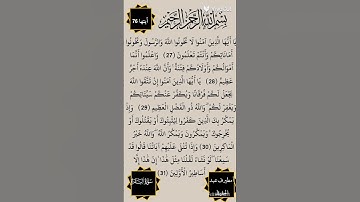 بسم الله الرحمن الرحيم
آيتها 76
يَا أَيُّهَا الَّذِينَ آمَنُوا لَا تَخُونُوا اللَّهَ وَالرَّسُولَ وَتَخُونُوا
أَمَانَاتِكُمْ وَأَنتُمْ تَعْلَمُونَ (27) وَاعْلَمُوا أَنَّمَا
أَمْوَالُكُمْ وَأَوْلَادُكُمْ فِتْنَةٌ وَأَنَّ اللَّهَ عِندَهُ أَجْرٌ
عَظِيمٌ (28) يَا أَيُّهَا الَّذِينَ آمَنُوا إِن تَتَّقُوا اللَّهَ
يَجْعَل لَّكُمْ فُرْقَانًا وَيُكَفِّرْ عَنكُمْ سَيِّئَاتِكُمْ
وَيَغْفِرْ لَكُمْ وَاللَّهُ ذُو الْفَضْلِ الْعَظِيمِ (29) وَإِذْ
يَمْكُرُ بِكَ الَّذِينَ كَفَرُوا لِيُثْبِتُوكَ أَوْ يَقْتُلُوكَ أَوْ
يُخْرِجُوكَ وَيَمْكُرُونَ وَيَمْكُرُ اللَّهُ وَاللَّهُ خَيْرُ
الْمَاكِرِينَ (30) وَإِذَا تُتْلَى عَلَيْهِمْ آيَاتُنَا قَالُوا قَدْ
سَمِعْنَا لَوْ نَشَاءُ لَقُلْنَا مِثْلَ هَذَا إِنْ هَذَا إِلَّا
أَسَاطِيرُ الْأَوَّلِينَ (31)